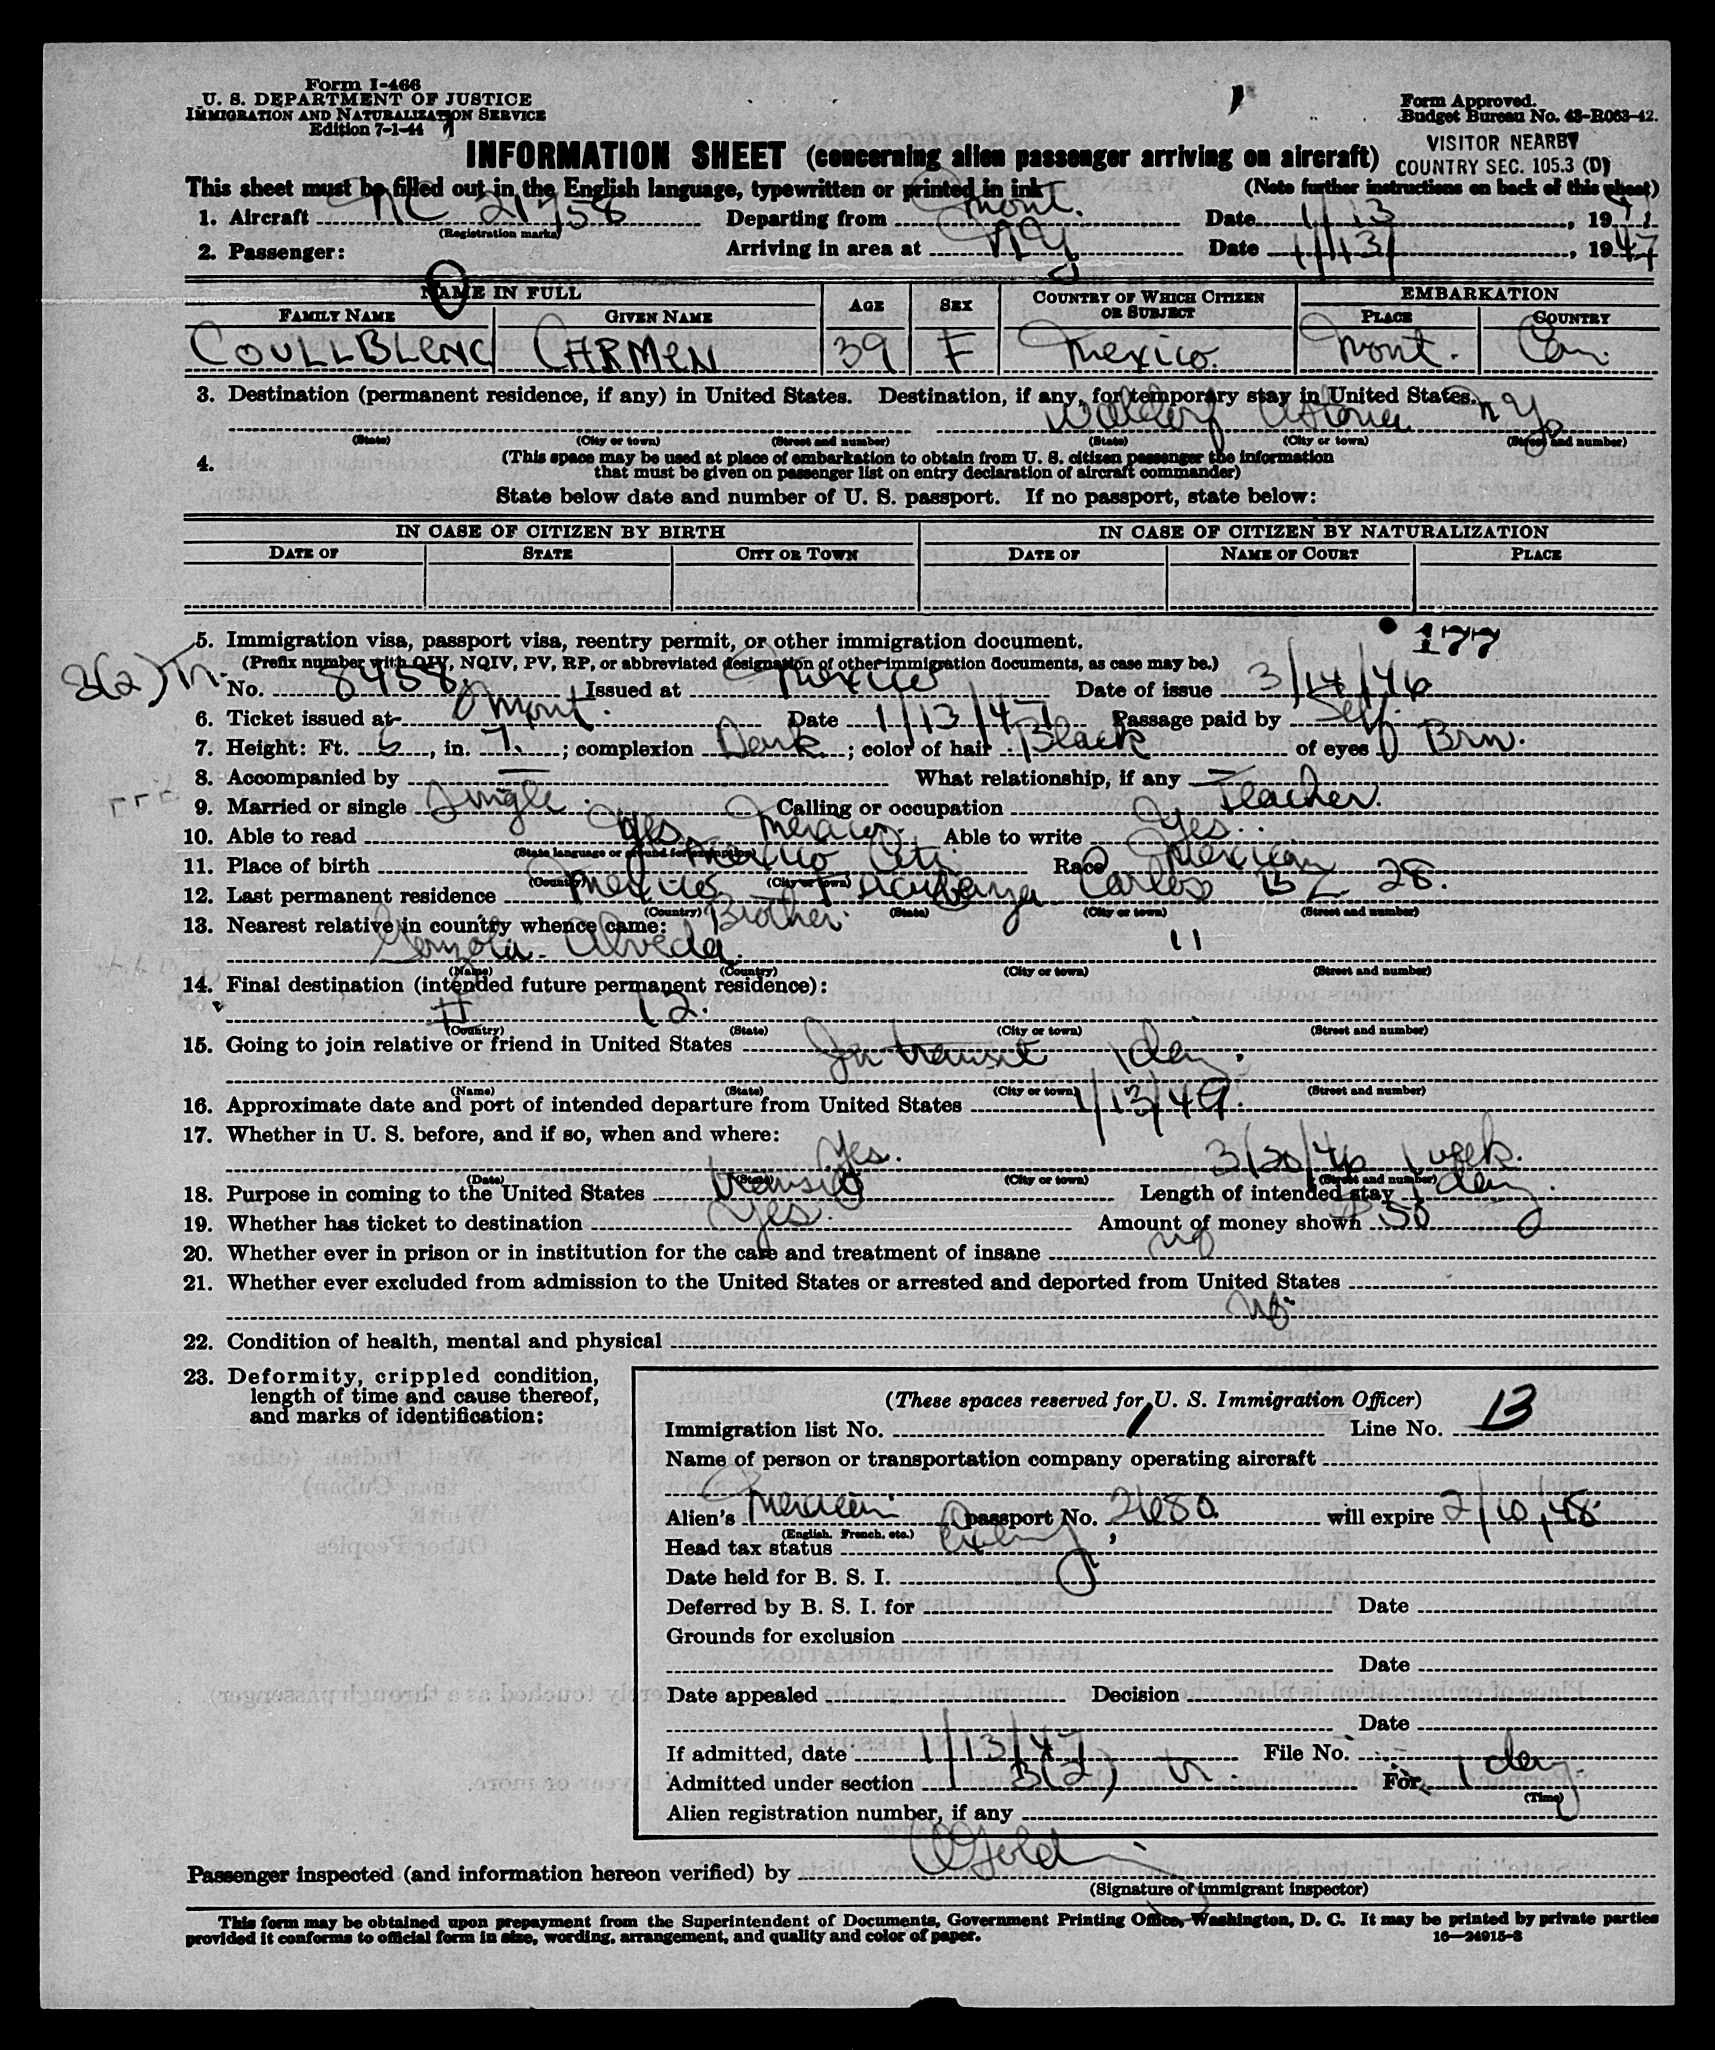 Form I-466
U. S. DEPARTMENT OF JUSTICE
IMMIGRATION AND NATURALIZATION SERVICE
Edition 7-1-44
Form Approved.
Budget Bureau No. 43-R063-42.
VISITOR NEARBY
COUNTRY SEC. 105.3 (D)
INFORMATION SHEET (concerning alien passenger arriving on aircraft)
This sheet must be filled out in the English language, typewritten or printed in ink
(Note further instructions on back of this sheet)
1. Aircraft NC 21758 Departing from Mont. Date 1/13, 1947
(Registration marks)
2. Passenger: Arriving in area at NY Date 1/13/, 1947
NAME IN FULL AGE SEX COUNTRY OF WHICH CITIZEN OR SUBJECT EMBARKATION
FAMILY NAME GIVEN NAME PLACE COUNTRY
COULLBLENC CARMEN 39 F Mexico. Mont. Can.
3. Destination (permanent residence, if any) in United States. Destination, if any, for temporary stay in United States.
Waldorf Astoria NY.
(State) (City or town) (Street and number) (State) (City or town) (Street and number)
4. (This space may be used at place of embarkation to obtain from U. S. citizen passenger the information
that must be given on passenger list on entry declaration of aircraft commander)
State below date and number of U. S. passport. If no passport, state below:
IN CASE OF CITIZEN BY BIRTH IN CASE OF CITIZEN BY NATURALIZATION
DATE OF STATE CITY OR TOWN DATE OF NAME OF COURT PLACE
5. Immigration visa, passport visa, reentry permit, or other immigration document. 177
(Prefix number with QIV, NQIV, PV, RP, or abbreviated designation of other immigration documents, as case may be.)
3(2) Tr.
No. 8458. Issued at Mexico Date of issue 3/14/46
6. Ticket issued at Mont. Date 1/13/47 Passage paid by Self.
7. Height: Ft. 5, in. 7.; complexion Dark; color of hair Black of eyes Brn.
8. Accompanied by — What relationship, if any —
9. Married or single Single. Calling or occupation Teacher.
10. Able to read Yes. Mexico. Able to write Yes.
(State language or ground for exemption)
11. Place of birth Mexico Citi. Race Mexican
(Country) (City or town)
12. Last permanent residence Mexico. Carlos 28.
(Country) (State) (City or town) (Street and number)
13. Nearest relative in country whence came: Brother.
Alveda. 11
(Name) (Country) (City or town) (Street and number)
14. Final destination (intended future permanent residence):
# 12.
(Country) (State) (City or town) (Street and number)
15. Going to join relative or friend in United States In transit 1 day.
(Name) (State) (City or town) (Street and number)
16. Approximate date and port of intended departure from United States 1/13/49.
17. Whether in U. S. before, and if so, when and where:
Yes. 3/20/46 1 week.
(Date) (State) (City or town) (Street and number)
18. Purpose in coming to the United States transit Length of intended stay 1 day.
19. Whether has ticket to destination Yes. Amount of money shown $50
20. Whether ever in prison or in institution for the care and treatment of insane no
21. Whether ever excluded from admission to the United States or arrested and deported from United States
No.
22. Condition of health, mental and physical
23. Deformity, crippled condition,
length of time and cause thereof,
and marks of identification:
(These spaces reserved for U. S. Immigration Officer)
Immigration list No. 1 Line No. 13
Name of person or transportation company operating aircraft
Alien's Mexican passport No. 21080. will expire 2/10/48.
(English, French, etc.)
Head tax status
Date held for B. S. I.
Deferred by B. S. I. for Date
Grounds for exclusion
Date
Date appealed Decision
Date
If admitted, date 1/13/47 File No.
Admitted under section 3(2) tr. For 1 day.
(Time)
Alien registration number, if any
Passenger inspected (and information hereon verified) by
(Signature of immigrant inspector)
This form may be obtained upon prepayment from the Superintendent of Documents, Government Printing Office, Washington, D. C. It may be printed by private parties
provided it conforms to official form in size, wording, arrangement, and quality and color of paper. 16—24915-3